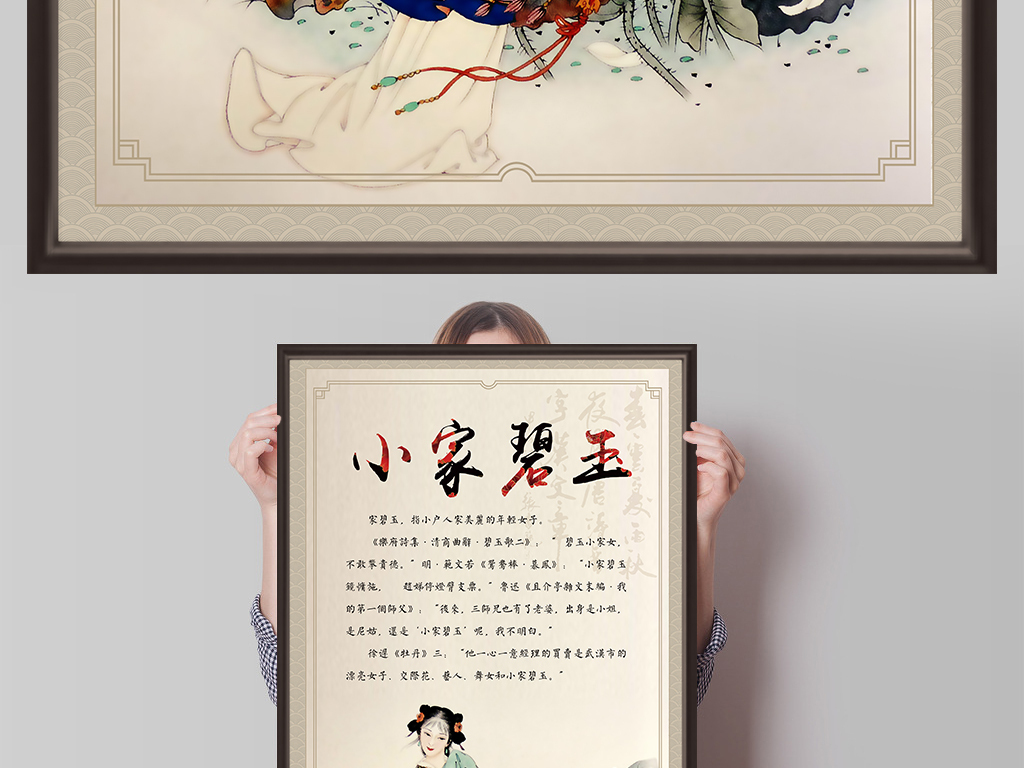 小家碧玉
家碧玉，指小户人家美麗的年輕女子。
《樂府詩集·清商曲辭·碧玉歌二》：“碧玉小家女，
不敢攀貴德。”明·範文若《鴛鴦棒·慕鳳》：“小家碧玉
鏡慵施， 趙娣停燈臂支粟。”魯迅《且介亭雜文末編·我
的第一個師父》：“後來，三師兄也有了老婆，出身是小姐，
是尼姑，還是‘小家碧玉’呢，我不明白。”
徐遲《牡丹》三：“他一心一意經理的買賣是武漢市的
漂亮女子、交際花、藝人、舞女和小家碧玉。”